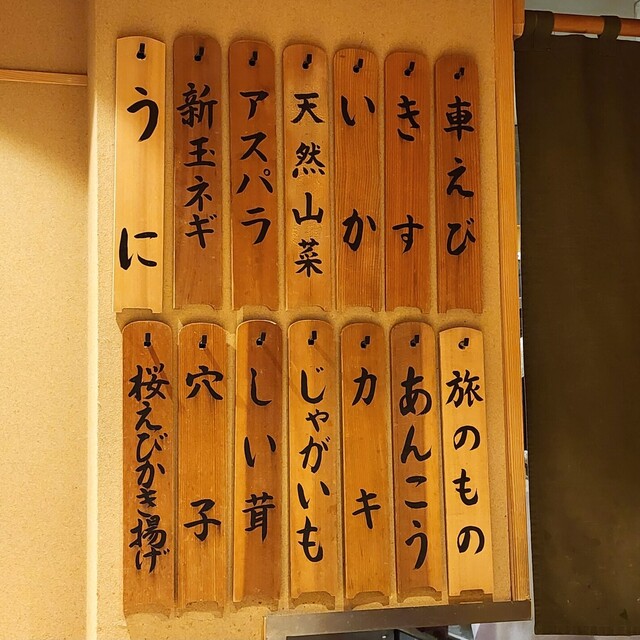 車えび
きす
いか
天然山菜
アスパラ
新玉ネギ
うに
旅のもの
あんこう
カキ
じゃがいも
しい茸
穴子
桜えびかき揚げ